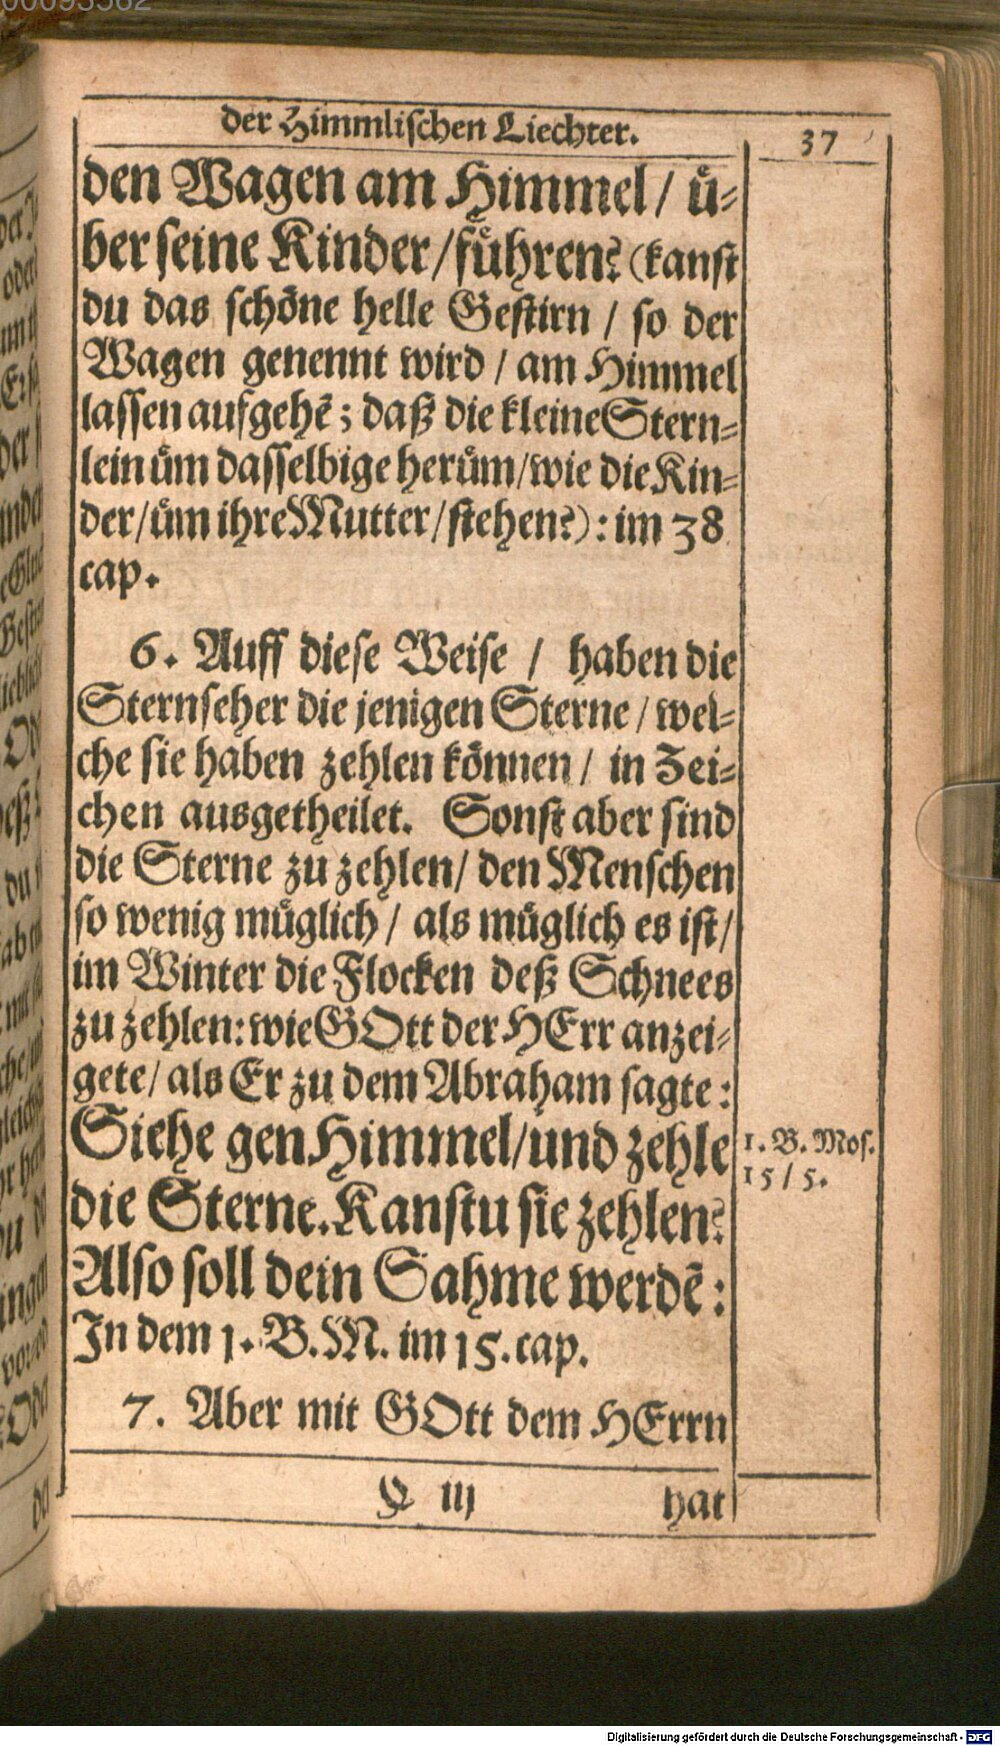 der Himmlischen Liechter.
37
den Wagen am Himmel / uͤ-
ber seine Kinder / fuͤhren? (kanst
du das schoͤne helle Gestirn / so der
Wagen genennt wird / am Himmel
lassen aufgehẽ; daß die kleine Stern-
lein uͤm dasselbige heruͤm / wie die Kin-
der / uͤm ihre Mutter / stehen?): im 38
cap.
6. Auff diese Weise / haben die
Sternseher die jenigen Sterne / wel-
che sie haben zehlen koͤnnen / in Zei-
chen ausgetheilet. Sonst aber sind
die Sterne zu zehlen / den Menschen
so wenig muͤglich / als muͤglich es ist /
im Winter die Flocken deß Schnees
zu zehlen: wie GOtt der HErr anzei-
gete / als Er zu dem Abraham sagte:
Siehe gen Himmel / und zehle
1. B. Mos.
15 / 5.
die Sterne. Kanstu sie zehlen?
Also soll dein Sahme werdẽ:
In dem 1. B. M. im 15. cap.
7. Aber mit GOtt dem HErrn
iij
hat
Digitalisierung gefördert durch die Deutsche Forschungsgemeinschaft - DFG